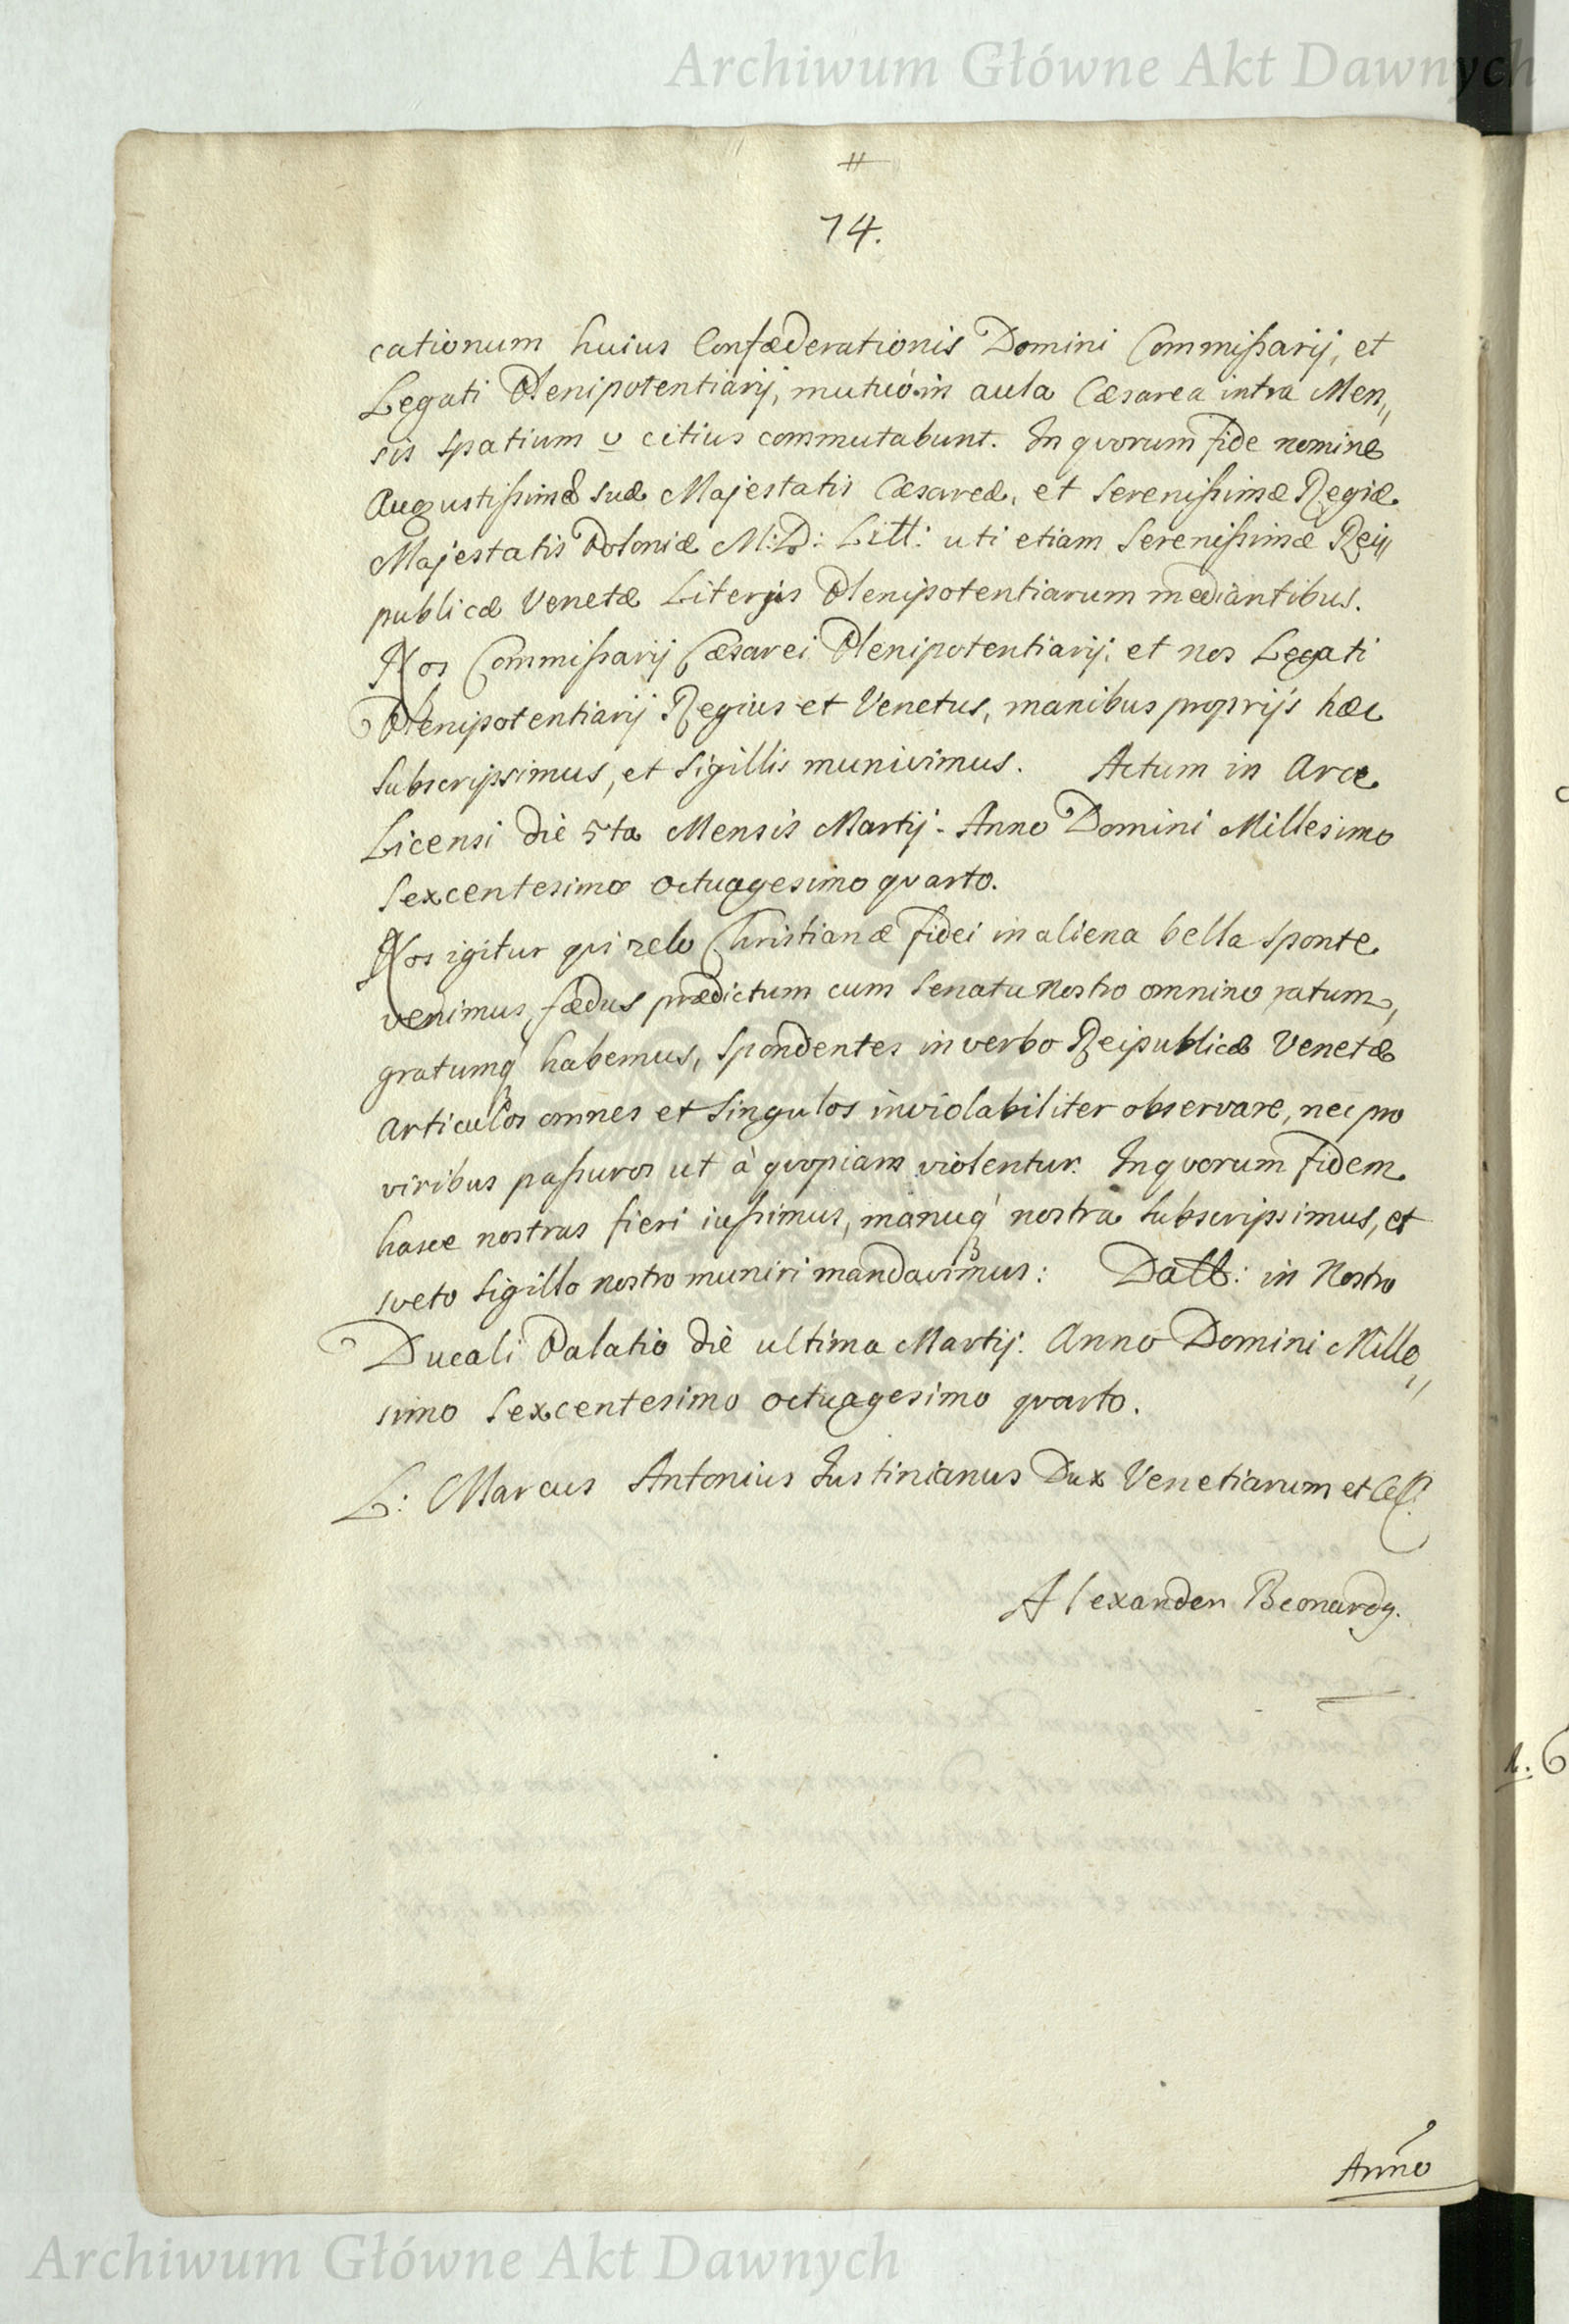 Archiwum Główne Akt Dawnych
14.
cationum huius Confœderationis Domini Commißarij, et
Legati Plenipotentiarij, mutuò in aula Cæsarea intra Men„
sis spatium v citius commutabunt. In quorum fide nomine
Augustißimæ suæ Majestatis Cæsareæ, et Serenißimæ Regiæ
Majestatis Poloniæ M: D: Litt: uti etiam Serenißimæ Rei„
publicæ Venetæ Literis Plenipotentiarum mediantibus.
Nos Commißarij Cæsarei Plenipotentiarij, et nos Legati
Plenipotentiarij Regius et Venetus, manibus proprijs hæc
subscripsimus, et sigillis munivimus. Actum in Arce
Licensi die 5ta Mensis Martij. Anno Domini Millesimo
Sexcentesimo octuagesimo quarto.
Nos igitur qui zelo Christianæ fidei in aliena bella sponte
venimus, fædus prædictum cum Senatu Nostro omnino ratum,
gratumq' habemus, spondentes in verbo Reipublicæ Venetæ
articulos omnes et singulos inviolabiliter observare, nec pro
viribus paßuros ut à quopiam violentur. In quorum fidem
hasce nostras fieri iußimus, manuq' nostra subscripsimus, et
sveto sigillo nostro muniri mandavimus: Datt: in Nostro
Ducali Palatio die ultima Martij. Anno Domini Mille„
simo Sexcentesimo octuagesimo quarto.
L: Marcus Antonius Justinianus Dux Venetiarum et
Alexander Beonardy.
Anno
Archiwum Główne Akt Dawnych